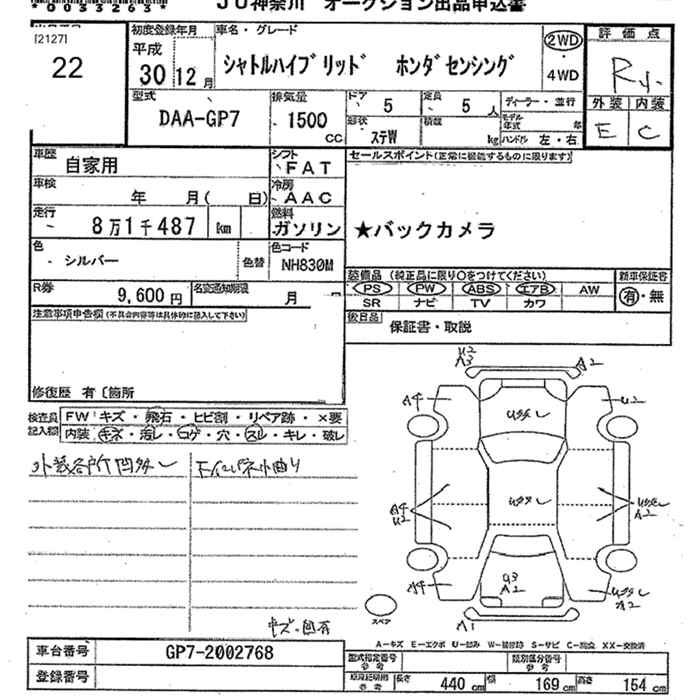 *0053263*
JU神奈川 オークション出品申込書
[2127]
22
初度登録年月
平成
30 12月
車名・グレード
シャトルハイブリッド ホンダセンシング
2WD
・
4WD
評価点
R
外装 内装
E C
型式
DAA-GP7
排気量
1500
CC
ドア
5
定員
5 人
ディーラー・並行
形状
ステW
積載
kg
モデル年式
年
ハンドル 左・右
車歴
自家用
シフト
FAT
セールスポイント(正常に機能するものに限ります)
車検
年 月( 日)
冷房
AAC
走行
8万1千487 km
燃料
ガソリン
★バックカメラ
色
シルバー
色替
色コード
NH830M
装備品 (純正品に限り○をつけてください)
新車保証書
PS PW ABS エアB AW
有・無
SR ナビ TV カワ
R券
9,600円
名変通知期限
月
注意事項申告欄(不具合内容等は具体的に記入して下さい)
後日品
保証書・取説
修復歴 有〔箇所
検査員記入欄
FW キズ・飛石・ヒビ割・リペア跡・×要
内装 キズ・汚レ・コゲ・穴・スレ・キレ・破レ
外装各所凹多し
U2
A3
A2
A4
U2
A4
U2
A2
A4
U3
A2
A2
A1
スペア
A-キズ E-エクボ U-凹み W-補修跡 S-サビ C-腐蝕 XX-交換済
車台番号
GP7-2002768
型式指定番号
参考
類別区分番号
参考
登録番号
参考
長さ
440 cm
幅
169 cm
高さ
154 cm